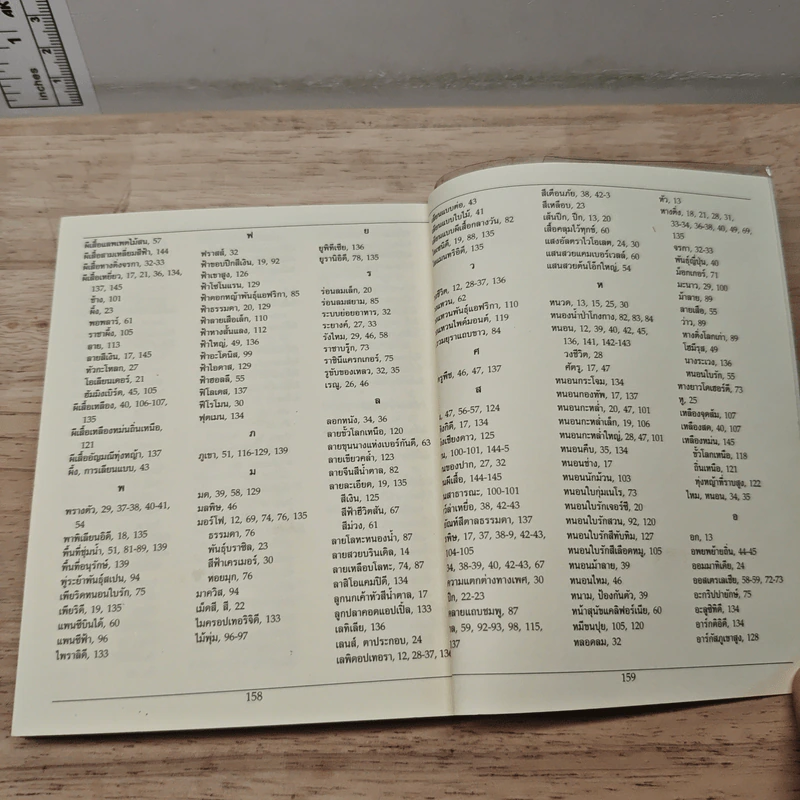 inches
1
2
3
ผีเสื้อแพแพคไม้สน, 57
ผีเสื้อสามเหลี่ยมสีฟ้า, 144
ผีเสื้อหางติ่งจรกา, 32-33
ผีเสื้อเหยี่ยว, 17, 21, 36, 134,
137, 145
ช้าง, 101
ผึ้ง, 23
พอพลาร์, 61
ราชาผึ้ง, 105
ลาย, 113
ลายสีเงิน, 17, 145
หัวกะโหลก, 27
โอเลียนเดอร์, 21
ฮัมมิงเบิร์ด, 45, 105
ผีเสื้อเหลือง, 40, 106-107,
135
ผีเสื้อเหลืองหม่นถิ่นเหนือ,
121
ผีเสื้ออัญมณีทุ่งหญ้า, 137
ผึ้ง, การเลียนแบบ, 43
พ
พรางตัว, 29, 37-38, 40-41,
54
พาพิเลียนอิดี, 18, 135
พื้นที่ชุ่มน้ำ, 51, 81-89, 139
พื้นที่อนุรักษ์, 139
พู่ระย้าพันธุ์สเปน, 94
เพียริดหนอนใบรัก, 75
เพียริดี, 19, 135
แพนซีบินได้, 60
แพนซีฟ้า, 96
ไพราลิดี, 133
ฟ
ฟราสส์, 32
ฟ้าขอบปีกสีเงิน, 19, 92
ฟ้าเขาสูง, 126
ฟ้าไซโนแรน, 129
ฟ้าดอกหญ้าพันธุ์แอฟริกา, 85
ฟ้าธรรมดา, 20, 129
ฟ้าลายเสือเล็ก, 110
ฟ้าหางสั้นแลง, 112
ฟ้าใหญ่, 49, 136
ฟ้าอะโดนิส, 99
ฟ้าไอดาส, 129
ฟ้าฮอลลี, 55
ฟิโลเดส, 137
ฟีโรโมน, 30
ฟุตเมน, 134
ภ
ภูเขา, 51, 116-129, 139
ม
มด, 39, 58, 129
มลพิษ, 46
มอร์โฟ, 12, 69, 74, 76, 135
ธรรมดา, 76
พันธุ์บราซิล, 23
สีฟ้าเครเมอร์, 30
หอยมุก, 76
มาควิส, 94
เม็ดสี, สี, 22
ไมครอปเทอริจิดี, 133
ไม้พุ่ม, 96-97
ย
ยูพิทีเซีย, 136
ยูรานิอิดี, 78, 135
ร
ร่อนลมเล็ก, 20
ร่อนลมสยาม, 85
ระบบย่อยอาหาร, 32
ระยางค์, 27, 33
รังไหม, 29, 46, 58
ราชาบรู๊ก, 73
ราชินีแครกเกอร์, 75
รูขับของเหลว, 32, 35
เรณู, 26, 46
ล
ลอกหนัง, 34, 36
ลายขั้วโลกเหนือ, 120
ลายขุนนางแห่งเบอร์กันดี, 63
ลายเขียวคล้ำ, 123
ลายจีนสีน้ำตาล, 82
ลายละเอียด, 19, 135
สีเงิน, 125
สีฟ้าฮีวิตสัน, 67
สีม่วง, 61
ลายโลหะหนองน้ำ, 87
ลายสวยบรินเดิล, 14
ลายเหลือบโลหะ, 74, 87
ลาสิโอแคมปิดี, 134
ลูกนกเค้าหัวสีน้ำตาล, 17
ลูกปลาคอดแอปเปิ้ล, 133
เลทิเลีย, 136
เลนส์, ตาประกอบ, 24
เลพิดอปเทอรา, 12, 28-37,
158
เลียนแบบต่อ, 43
เลียนแบบใบไม้, 41
เลียนแบบผีเสื้อกลางวัน, 82
19, 88, 135
135
ว
12, 28-37, 136
62
พันธุ์แอฟริกา, 110
119
84
ศ
46, 47, 137
ส
47, 56-57, 124
17, 134
125
100-101, 144-5
27, 32
144-145
100-101
38, 42-43
137
17, 37, 38-9, 42-43,
104-105
34, 38-39, 40, 42-43, 67
ความแตกต่างทางเพศ, 30
22-23
ลายแถบชมพู, 87
59, 92-93, 98, 115,
137
สีเตือนภัย, 38, 42-3
สีเหลือบ, 23
เส้นปีก, ปีก, 13, 20
เสื้อคลุมไว้ทุกข์, 60
แสงอัลตราไวโอเลต, 24, 30
แสนสวยแคมเบอร์เวลล์, 60
แสนสวยต้นโอ๊กใหญ่, 54
ห
หนวด, 13, 15, 25, 30
หนองน้ำป่าโกงกาง, 82, 83, 84
หนอน, 12, 39, 40, 42, 45,
136, 141, 142-143
วงชีวิต, 28
ศัตรู, 17, 47
หนอนกระโจม, 134
หนอนกองทัพ, 17, 137
หนอนกะหล่ำ, 20, 47, 101
หนอนกะหล่ำเล็ก, 19, 106
หนอนกะหล่ำใหญ่, 28, 47, 101
หนอนคืบ, 35, 134
หนอนช่าง, 17
หนอนนักม้วน, 103
หนอนใบกุ่มเนโร, 73
หนอนใบรักเจอร์ซี, 20
หนอนใบรักสวน, 92, 120
หนอนใบรักสีทับทิม, 127
หนอนใบรักสีเลือดหมู, 105
หนอนม้าลาย, 39
หนอนไหม, 46
หนาม, ป้องกันตัว, 39
หน้าสุนัขแคลิฟอร์เนีย, 60
หมีขนปุย, 105, 120
หลอดลม, 32
หัว, 13
หางติ่ง, 18, 21, 28, 31,
33-34, 36-38, 40, 49, 69,
135
จรกา, 32-33
พันธุ์ญี่ปุ่น, 40
น็อกเกอร์, 71
มะนาว, 29, 100
ม้าลาย, 89
ลายเสือ, 55
ว่าว, 89
หางติ่งโลกเก่า, 89
โฮมีรุส, 49
นางระเวง, 136
หนอนใบรัก, 55
หางยาวโดเฮอร์ตี, 73
หู, 25
เหลืองจุดส้ม, 107
เหลืองสด, 40, 107
เหลืองหม่น, 145
ขั้วโลกเหนือ, 118
ถิ่นเหนือ, 121
ทุ่งหญ้าที่ราบสูง, 122
ไหม, หนอน, 34, 35
อ
อก, 13
อพยพย้ายถิ่น, 44-45
ออมมาทิเดีย, 24
ออสเตรเลเซีย, 58-59, 72-73
อะกริปปายักษ์, 75
อะลูซิทิดี, 134
อาร์กติอิดี, 134
อาร์กัสภูเขาสูง, 128
159